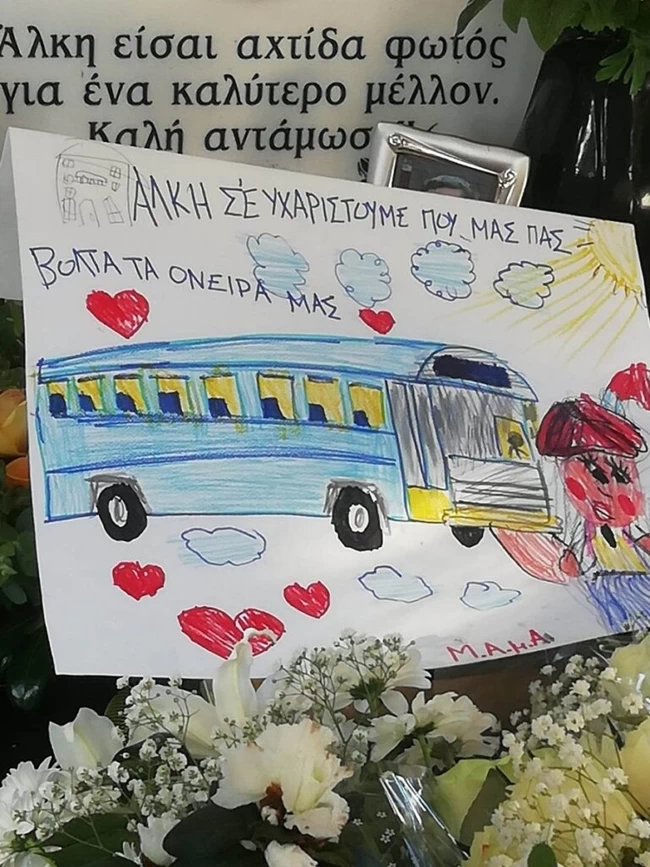 Άλκη είσαι αχτίδα φωτός
για ένα καλύτερο μέλλον.
Καλή
ΑΛΚΗ Σ' ΕΥΧΑΡΙΣΤΟΥΜΕ ΠΟΥ ΜΑΣ ΠΑΣ
ΒΟΛΤΑ ΤΑ ΟΝΕΙΡΑ ΜΑΣ
Μ.Α.Μ.Α.